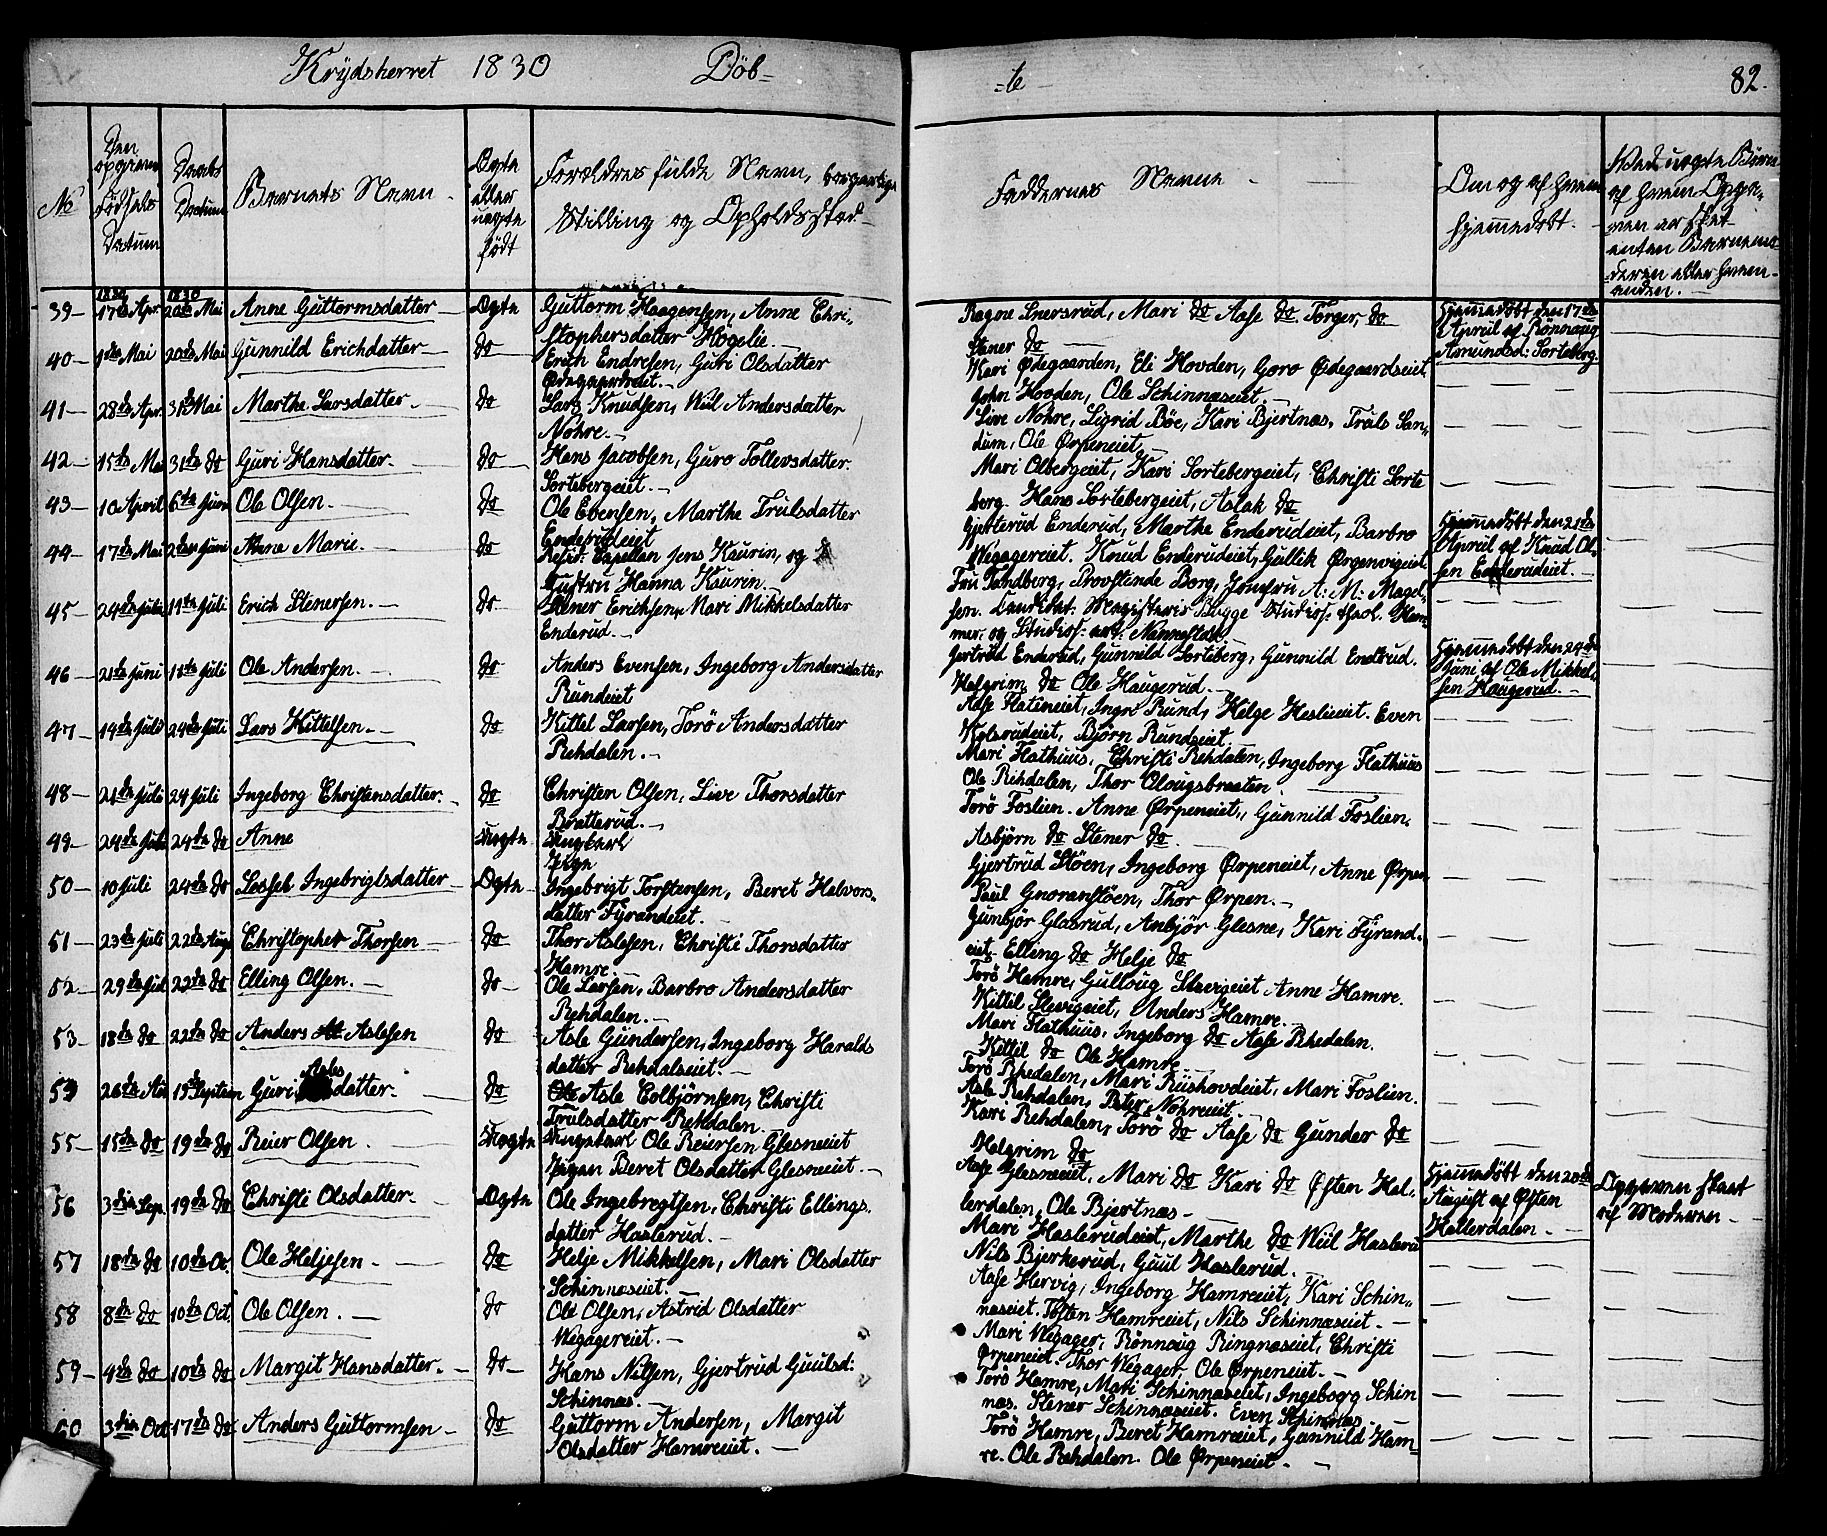 Krydsherret 1830 Döb-
-te- 82.
No
Den opgivne Födsels Datum
Daabs Datum
Barnets Navn.
Ægte eller uægte födt
Forældres fulde Navn, borgerlige
Stilling og Opholdssted
Faddernes Navne
Om og af hvem hjemmedöbt.
Ved uægte Börn
af hvem Opgi-
1830 1830
39 17de Apr. 20de Mai Anne Guttormsdatter Ægte Guttorm Haagensen, Anne Chri-
stophersdatter Kogelie.
Ragne Snersrud, Mari do Aase do. Torger, do
Stener do
Hjemmedöbt den 17de
April af Rönnaug
Asmundsd: Sorteberg.
40 1ste Mai 20de Mai Gunnild Erichdatter do Erich Endresen, Guri Olsdatter
Ødegaardseiet.
Kari Ødegaarden, Eli Hovden, Goro Ødegaardseiet
John Hovden, Ole Schinnæseiet.
41 28de Apr. 31te Mai Marthe Larsdatter do Lars Knudsen, Andersdatter
Nohre.
Live Nohre, Sigrid Böe, Kari Bjertnæs, Truls San-
dum, Ole Ørpeneiet
42 15de Mai 31te do Guri Hansdatter. do Hans Jacobsen, Guro Tollevsdatter.
Sortebergeiet.
Mari Olbergeiet, Kari Sortebergeiet, Christi Sorte
berg. Hans Sortebergeiet, Aslak do
43 10 April 6te Juni Ole Olsen. do Ole Evensen, Marthe Trulsdatter
Enderudeiet
Gjertrud Enderud, Marthe Enderudeiet, Barbro
Wegagereiet. Knud Enderudeiet, Gullik Ørgenvigeiet
Hjemmedöbt den 21de
April af Knud Ol-
sen Enderudeiet.
44 17de Mai Juni Anne Marie. do Resid: Capellan Jens Kaurin, og
Hustru Hanna Kaurin.
Fru Tandberg, Provstinde Borg, Jomfru A: M: Magel-
sen. Candidat. Bugge Studios: theol. Ham-
mer. og Studios: art:
45 24de Juni 11te Juli Erich Stenersen. do Stener Erichsen, Mari Mikkelsdatter
Enderud.
Gjertrud Enderud, Gunnild Sorteberg, Gunnild Endrud.
Helgrim do Ole Haugerud.
Hjemmedöbt den 24de
Juni af Ole Mikkel-
sen Haugerud.
46 21de Juni 11te Juli Ole Andersen. do Anders Evensen, Ingeborg Andersdatter
Rundeiet
Aase Flatineiet, Ingri Rund, Helge Heslieiet. Even
Kolsrudeiet, Björn Rundeiet
47 14de Juli 24de Juli Lars Kittelsen. do Kittel Larsen, Torö Andersdatter
Rehdalen.
Mari Flathuus, Christi Rehdalen, Ingeborg Flathuus
Ole Rehdalen, Thor Olougsbraaten
48 21de Juli 24 Juli Ingeborg Christensdatter. do Christen Olsen, Live Thorsdatter
Bratterud.
Torö Foslien. Anne Ørpeneiet, Gunnild Foslien.
Asbjörn do Stener do
49 24de Juli 24de do Anne Uægte Ungkarl
Pigen
Gjertrud Stöen, Ingeborg Ørpeneiet, Anne Ørpen
Paul Gnoranstöen, Thor Ørpen.
50 10 Juli 24de do Ingebrigtsdatter Ægte Ingebrigt Torstensen, Beret Halvors-
datter Fyrandeiet.
Gunbjör Glasrud, Anbjör Glesne, Kari Fyrand-
eiet. Elling do Helje do
51 23de Juli 22de Aug Christopher Thorsen do Thor Aslesen, Christi Thorsdatter
Hamre.
Torö Hamre, Gulloug Anne Hamre.
Kittil Anders Hamre.
52 29de Juli 22de do Elling Olsen. do Ole Larsen, Barbro Andersdatter
Rehdalen.
Mari Flathuus, Ingeborg do Aase Rhedalen.
Kittil do Ole Hamre
53 18de do 22de do Anders Aslesen do Asle Gundersen, Ingeborg Haralds
datter Rehdalseiet.
Torö Rhedalen, Mari Riishovdeiet, Mari Foslien.
Asle Rehdalen, Peter Nohreeiet.
54 26de Au 19de Septem Guri Aslesdatter. do Asle Colbjörnsen, Christi
Trulsdatter Rehdalen.
Kari Rehdalen, Torö do Aase do Gunder do
Helgrim do
55 15de do 19de do Reier Olsen Uægte Ungkarl Ole Reiersen Glesneeiet
Pigen Beret Olsdatter Glesneeiet.
Aase Glesneeiet, Mari do Kari do Østen Hal-
lerdalen, Ole Bjertnæs
Hjemmedöbt den 20de
August af Østen
Hallerdalen.
Opgiven skeet
af Moderen
56 3die Sep. 19de do Christi Olsdatter Ægte Ole Ingebregtsen, Christi Ellings-
datter Haslerud.
Mari Haslerudeiet, Marthe do Haslerud
Nils Bjerkerud, Guul Haslerud.
57 18de do 10de Oc. Ole Heljesen do Helje Mikkelsen, Mari Olsdatter
Schinnæseiet.
Aase Hervig, Ingeborg Hamreeiet, Kari Schin-
næseiet. Tosten Hamreeiet, Nils Schinnæseiet.
58 8de do 10de Oct. Ole Olsen. do Ole Olsen, Astrid Olsdatter
Wegagereiet.
Mari Wegager, Rönnaug Ringnæseiet, Christi
Ørpeneiet. Thor Wegager, Ole Ørpeneiet.
59 4de do 10de do Margit Hansdatter. do Hans Nilsen, Gjertrud Guulsd:
Schinnæs.
Torö Hamre, Mari Schinnæseiet, Ingeborg Schin
næs. Stener Schinnæseiet. Even Schinnæs.
60 3die Oct 17de do Anders Guttormsen do Guttorm Andersen, Margit
Olsdatter Hamreeiet.
Torö Hamre, Beret Hamreeiet, Gunnild Ham-
re. Ole Rehdalen. Ole Ørpeneiet